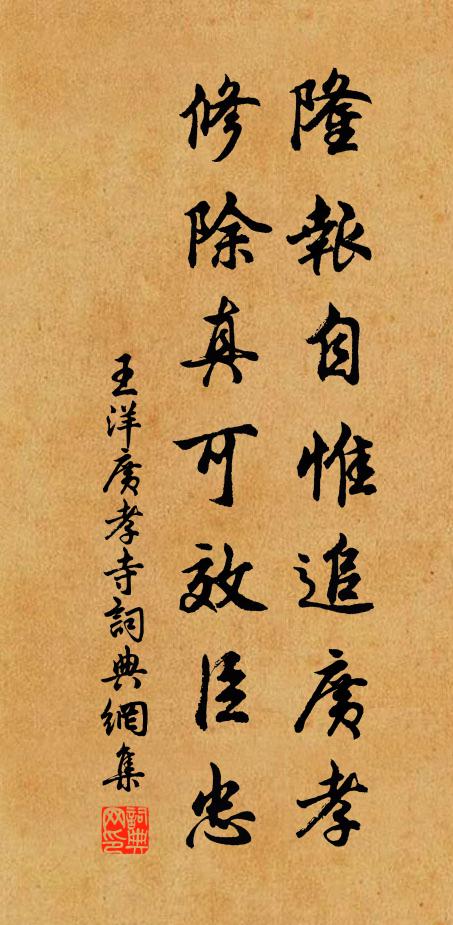 隆報自惟追廣孝
修除真可效臣忠
王洋廣孝寺詞典網集
詞典網印